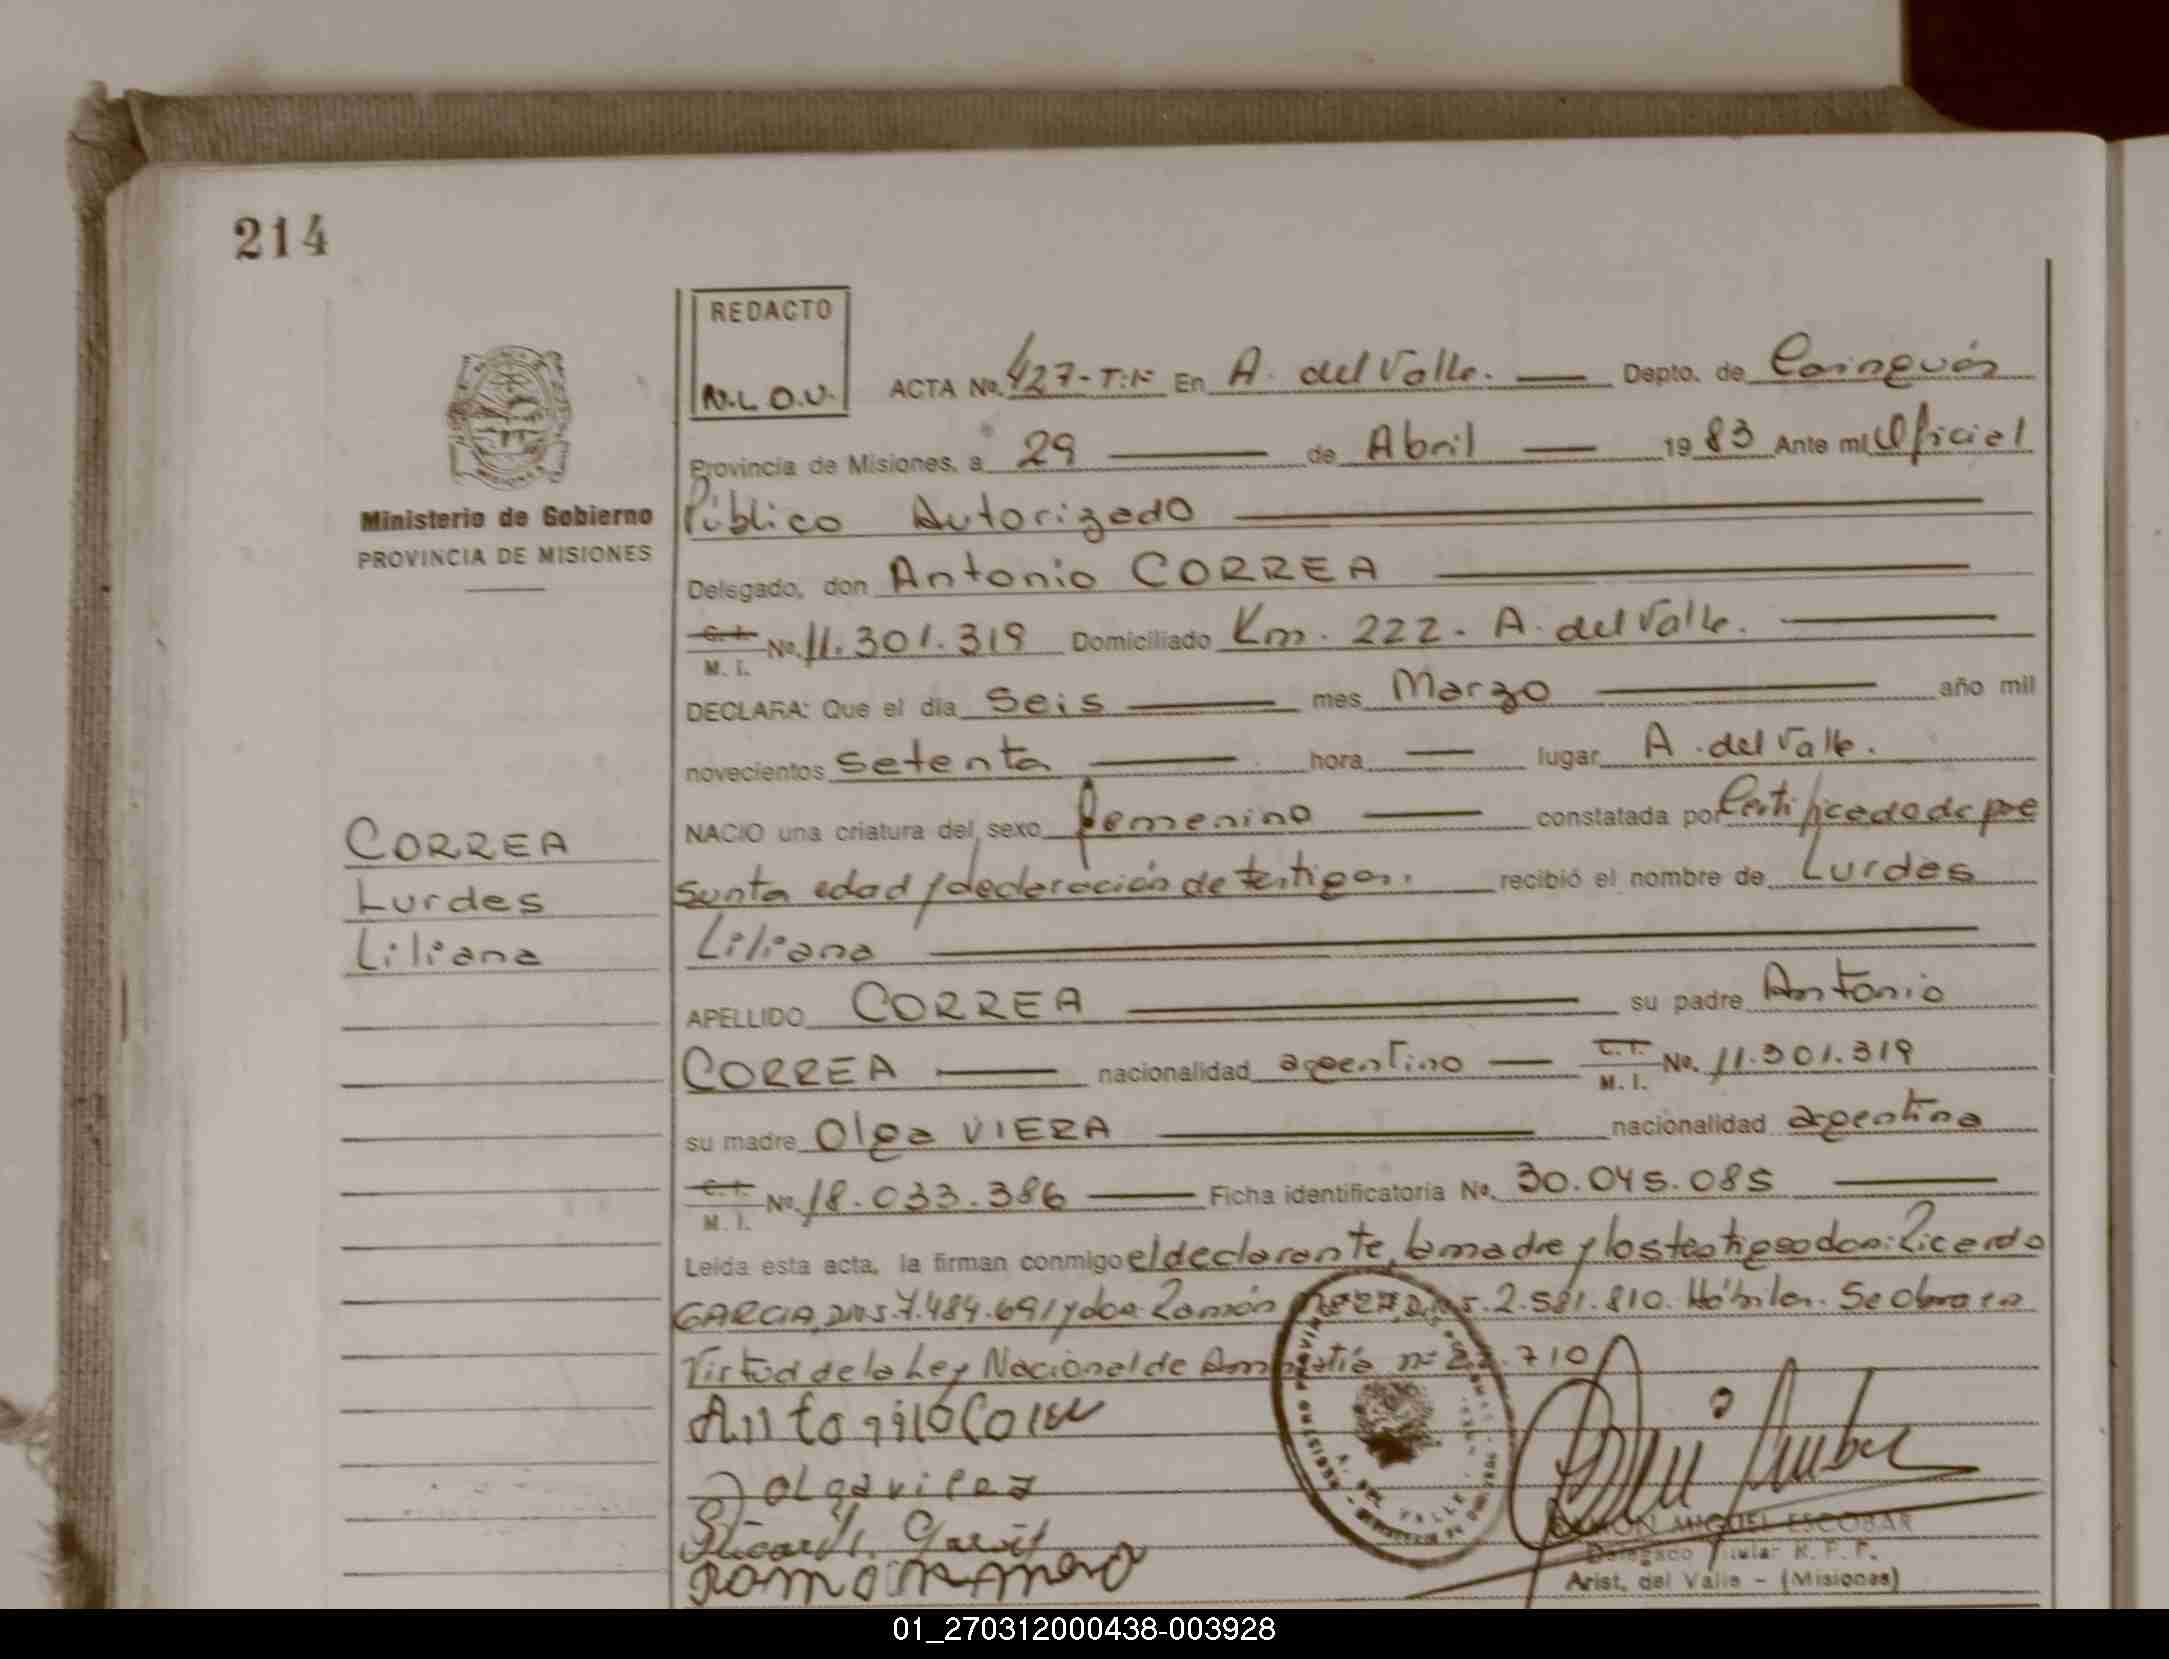 214
REDACTO
R.L.O.V.
ACTA No. 427-T:N En A. del Valle. Depto. de Cainguás
Provincia de Misiones, a 29 de Abril 1983 Ante mi Oficial
Ministerio de Gobierno
PROVINCIA DE MISIONES
Público Autorizado
Delegado, don Antonio CORREA
C. I. M. I. No. 11.301.319 Domiciliado Km. 222. A. del Valle.
DECLARA: Que el día seis mes Marzo año mil
novecientos setenta hora lugar A. del Valle.
NACIO una criatura del sexo femenino constatada por Certificado de pre
sunta edad y declaración de testigos. recibió el nombre de Lurdes
Liliana
CORREA
Lurdes
Liliana
APELLIDO CORREA su padre Antonio
CORREA nacionalidad argentino C. I. M. I. No. 11.301.319
su madre Olga VIERA nacionalidad argentina
C. I. M. I. No. 18.033.386 Ficha identificatoria No. 30.045.085
Leída esta acta, la firman conmigo el declarante, la madre y los testigos don: Ricardo
GARCIA, 7.484.691 y don Ramón 2.581.810. Hábiles. Se labra en
Virtud de la Ley Nacional de Amnistía nº 22.710
Olga viera
Ricardo Garcia
RAMON MIGUEL ESCOBAR
Delegado Titular R. P. P.
Arist. del Valle - (Misiones)
01_270312000438-003928